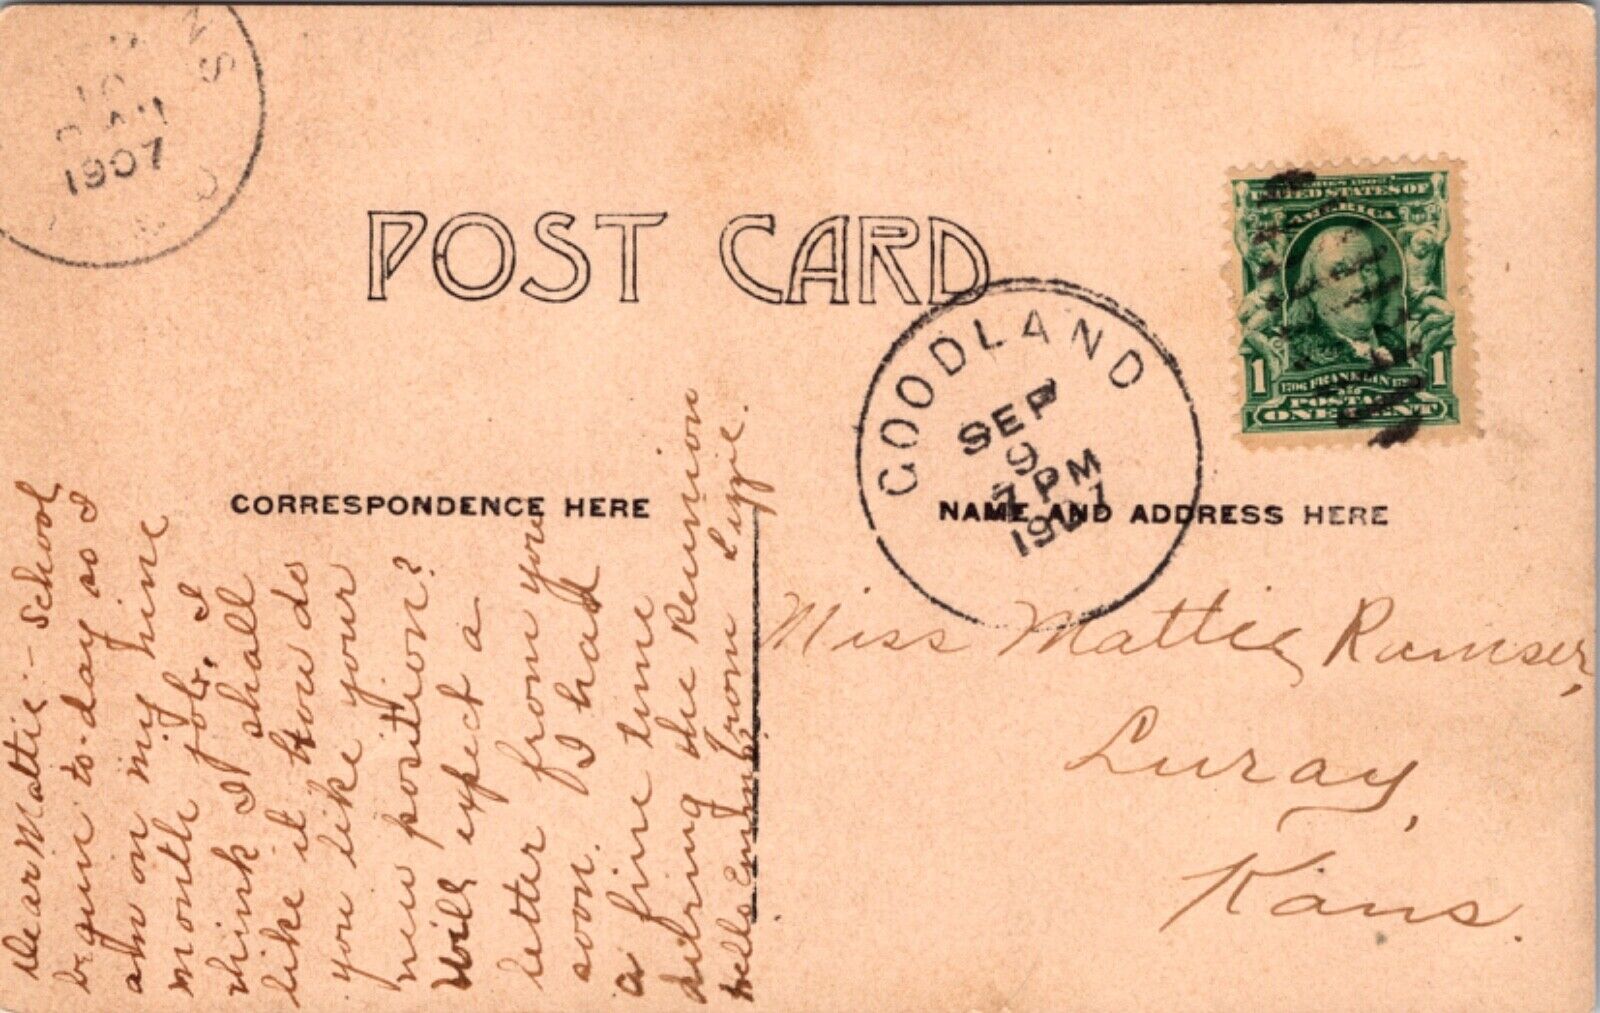 NS
10
AM
1907
POST CARD
SERIES 1902
UNITED STATES OF
AMERICA
1 1706 FRANKLIN 1790 1
POSTAGE
ONE CENT
GOODLAND
SEP
9
7 PM
1907
CORRESPONDENCE HERE
NAME AND ADDRESS HERE
Dear Mattie - School
begun to-day so I
am on my nine
month job. I
think I shall
like it how do
you like your
new position?
Will expect a
letter from you
soon. I had
a fine time
during the Reunion
from Lizzie.
Miss Mattie Ramser,
Luray,
Kans.